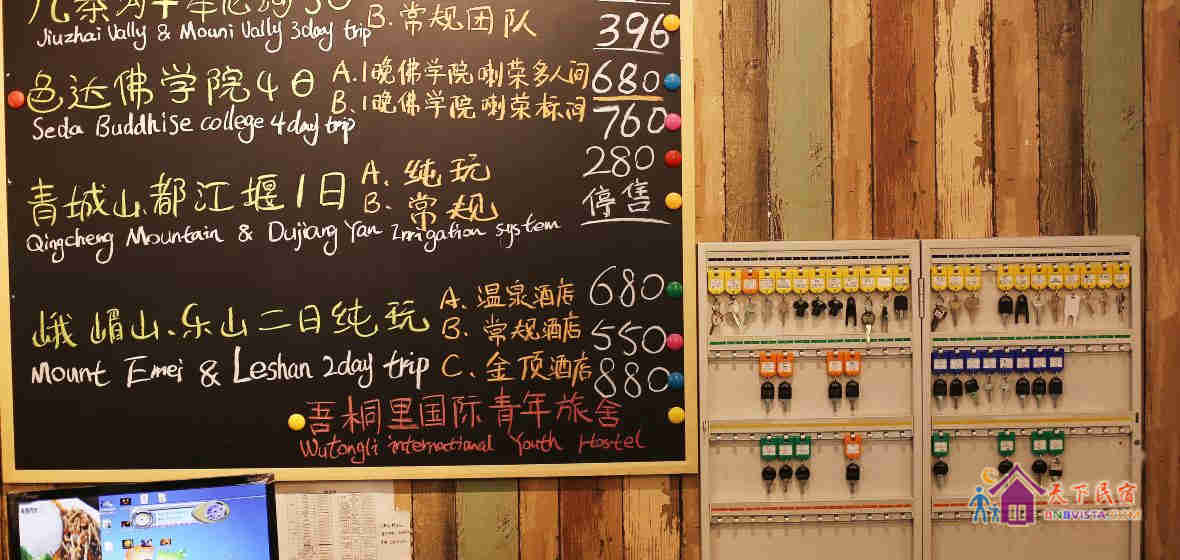 B.常规团队 396
Jiuzhai Vally & Mouni Vally 3day trip
色达佛学院4日 A.1晚佛学院喇荣多人间 680
B.1晚佛学院喇荣标间 760
Seda Buddhise college 4day trip
青城山.都江堰1日 A.纯玩 280
B.常规 停售
Qingcheng Mountain & Dujiang Yan Irrigation system
峨嵋山.乐山二日纯玩 A.温泉酒店 680
B.常规酒店 550
Mount Emei & Leshan 2day trip C.金顶酒店 880
吾桐里国际青年旅舍
Wutongli international Youth Hostel
天下民宿
BNBVISTA.COM